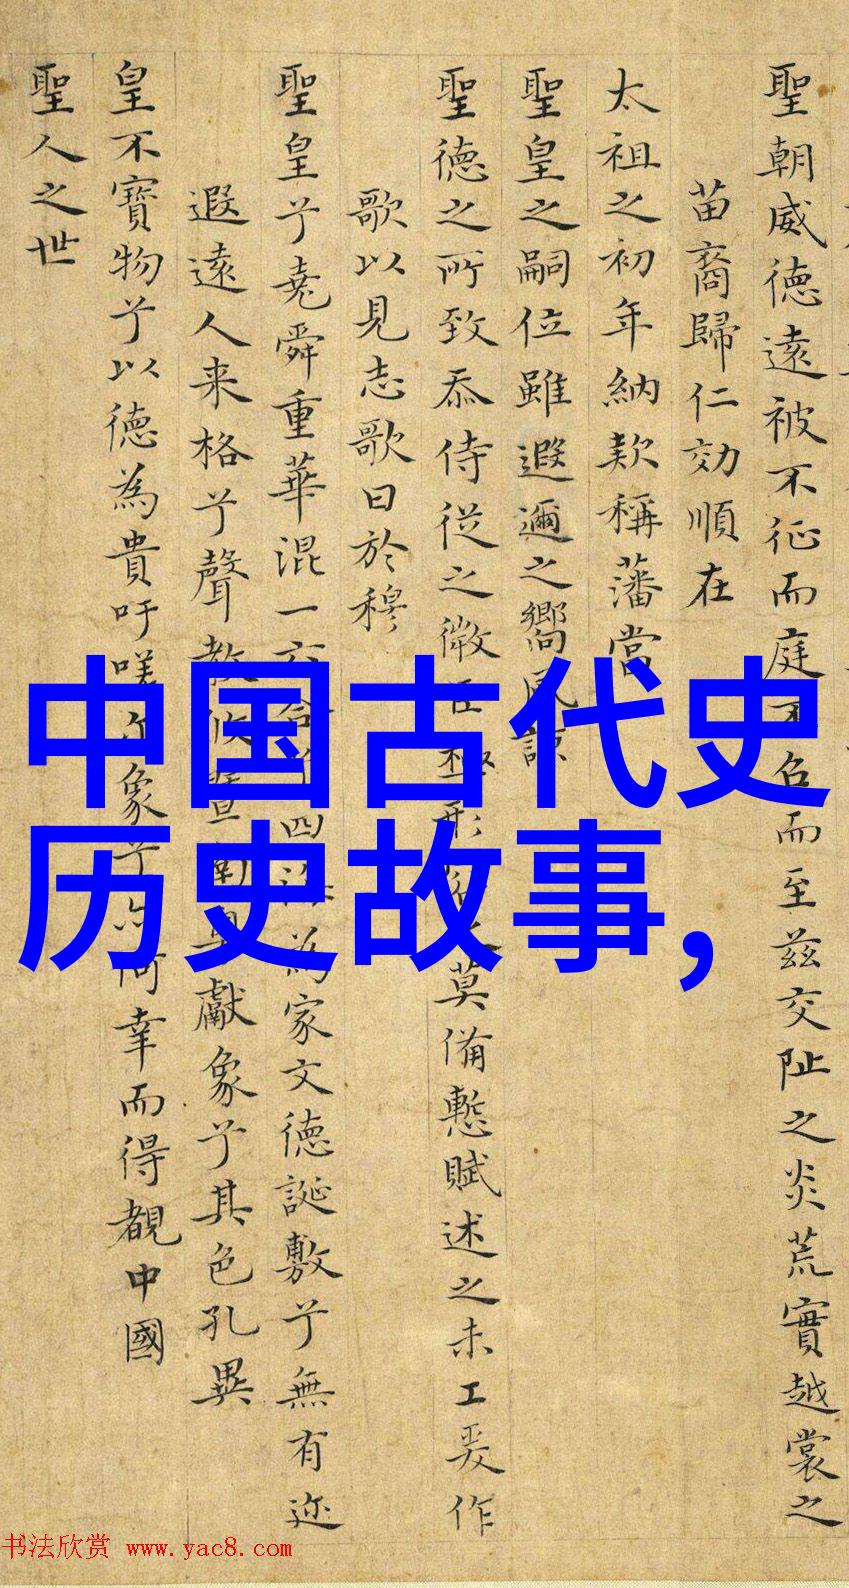 聖朝威徳遠被不征而庭不召而至兹交阯之炎荒實越裳之
苗裔歸仁効順在
太祖之初年納款稱藩當
聖皇之嗣位雖遐邇之嚮風諒
聖徳之所致忝侍從之微臣形莫備慙賦述之未工爰作
歌以見志歌曰於穆
聖皇兮堯舜重華混一六合兮四海為家文徳誕敷兮無有迩
遐遠人来格兮聲教攸暨獻象兮其色孔異
皇不寶物兮以徳為貴吁嗟象兮何幸而得覩中國
聖人之世
中国古代史
历史故事,
书法欣赏 www.yac8.com